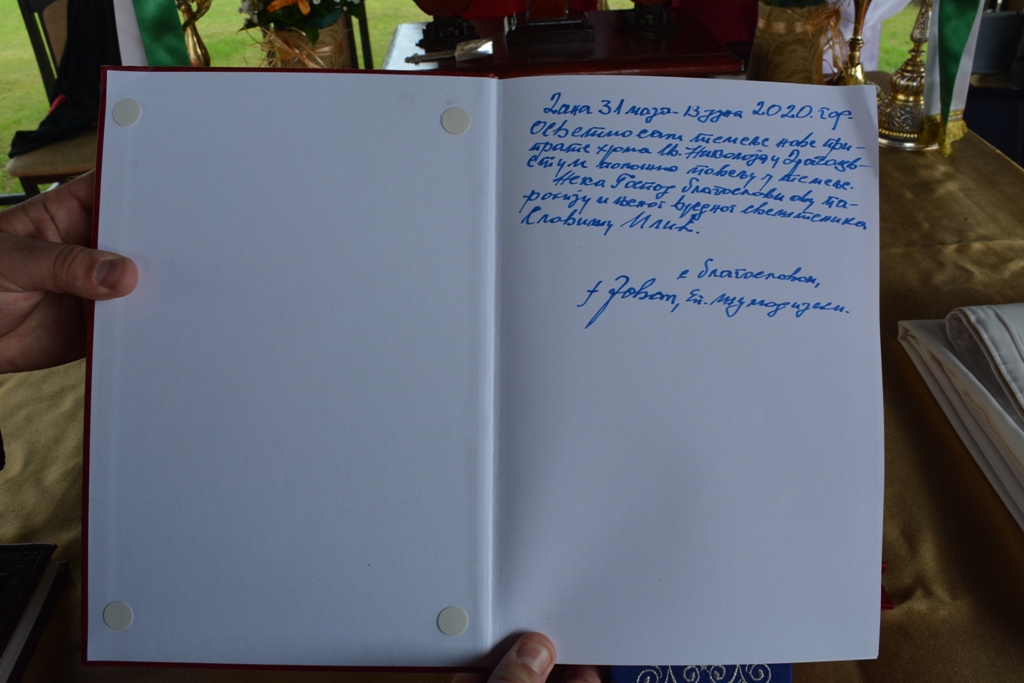 Дана 31 маја - 13 јуна 2020. год.
Осветио сам темеље нове при-
прате храма Св. Николаја у
и повељу у темеље.
Нека Господ благослови ову па-
рохију и њеног вредног свештеника
Славишу Илић.
с благословом,
† Јован, Еп. Шумадијски.